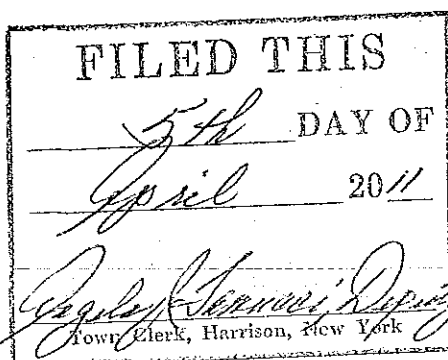 FILED THIS
5th DAY OF
April 2011
Deputy
Town Clerk, Harrison, New York